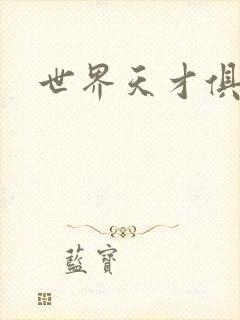 世界天才俱
藍寶